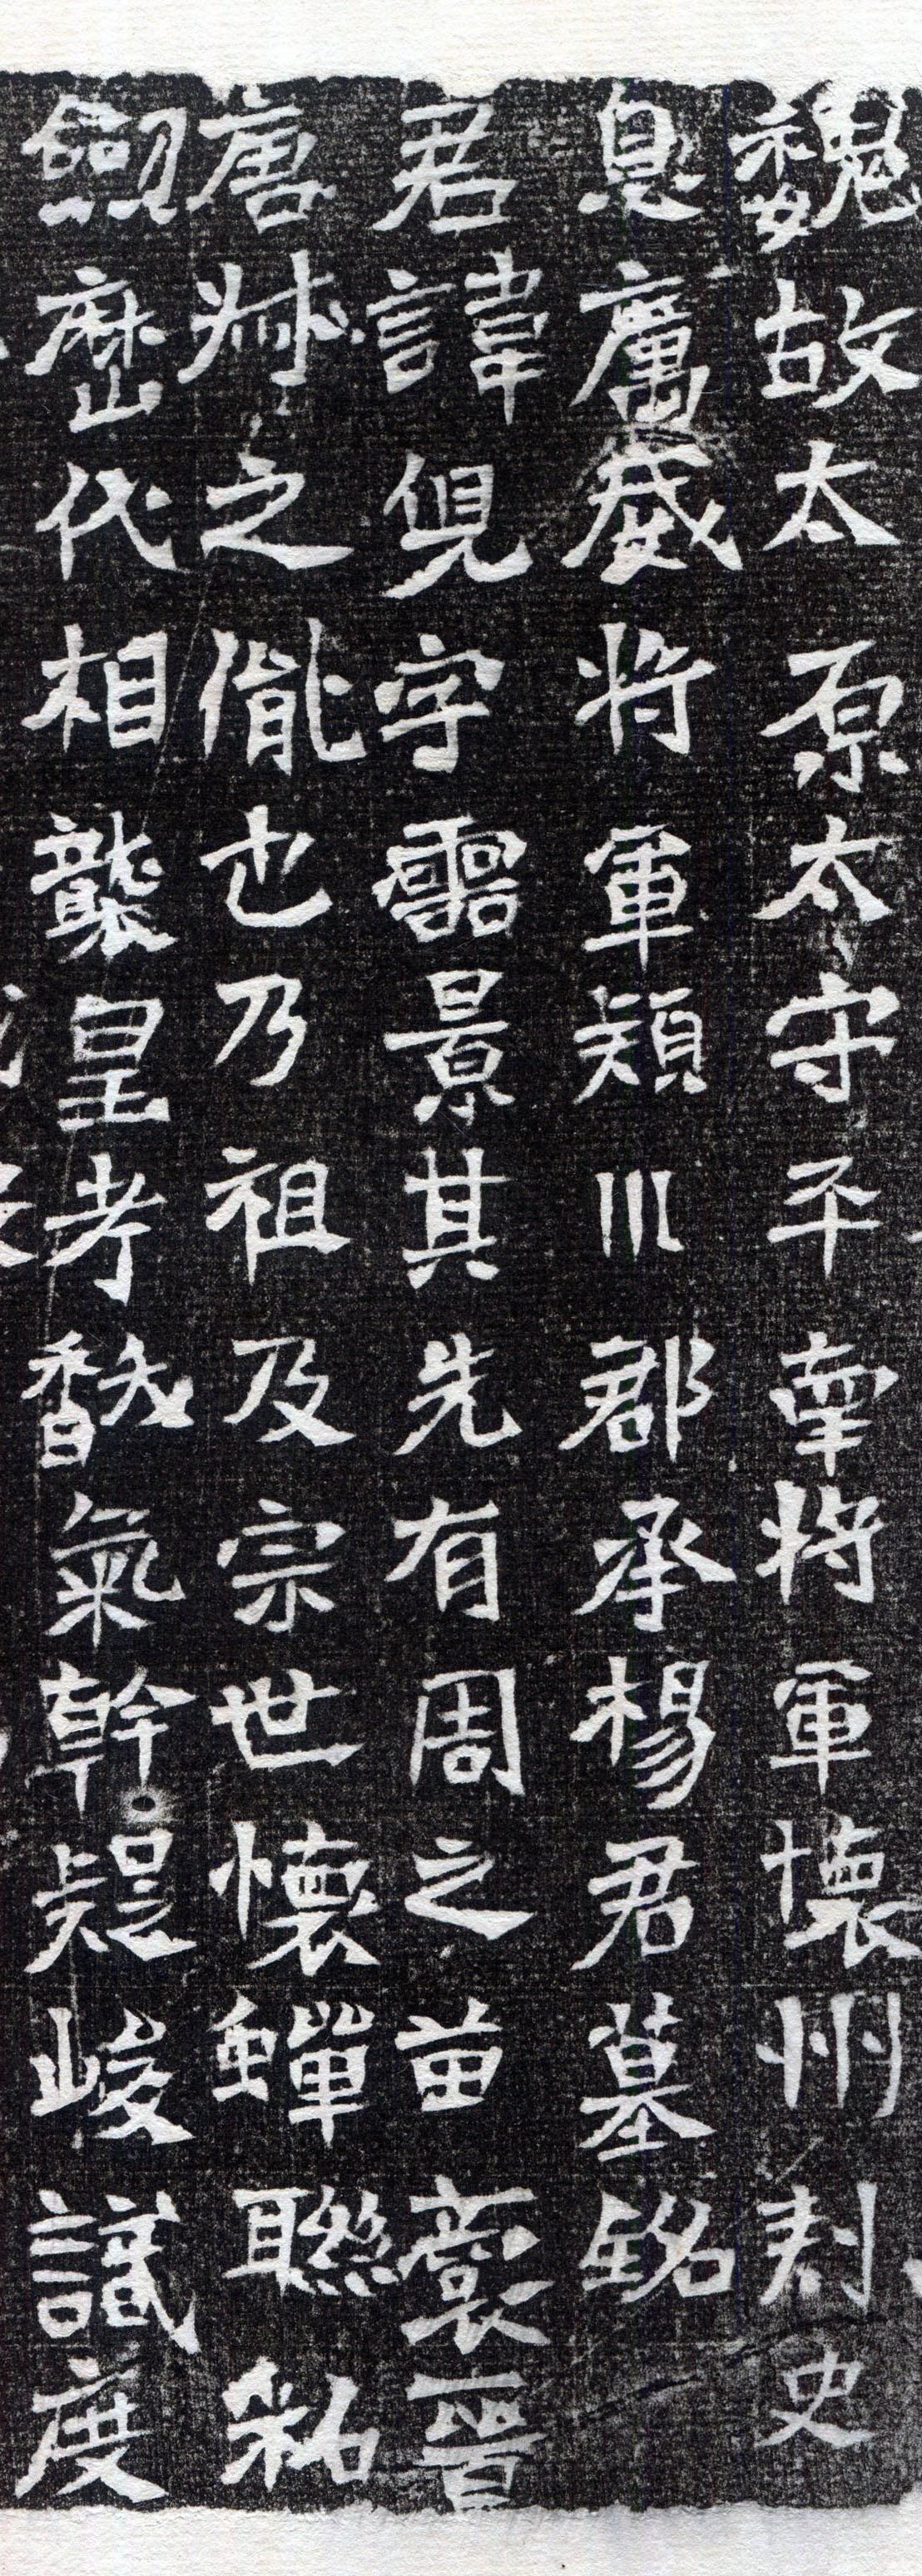 魏故太原太守平南將軍懷州刺史
息厲威將軍潁川郡丞楊君墓銘
君諱倪字靈景其先有周之苗裔晉
唐州之胤也乃祖及宗世懷蟬聯紹
劔歷代相襲皇考馥氣幹凝峻識度